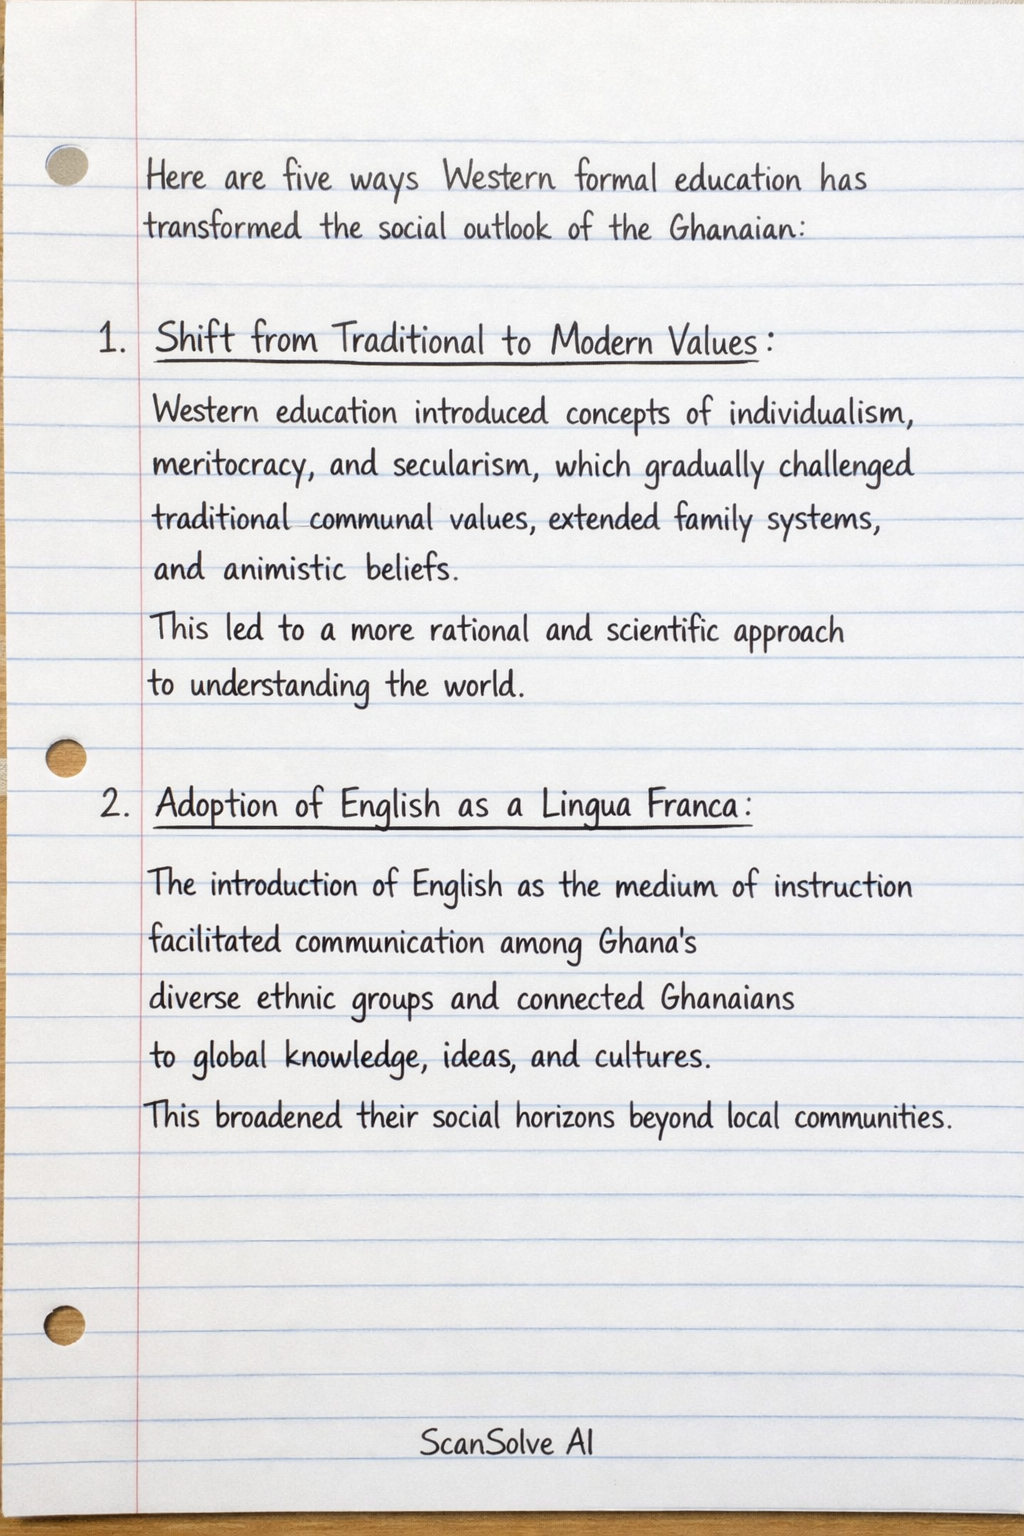 Here are five ways Western formal education has
transformed the social outlook of the Ghanaian:
1. Shift from Traditional to Modern Values:
Western education introduced concepts of individualism,
meritocracy, and secularism, which gradually challenged
traditional communal values, extended family systems,
and animistic beliefs.
This led to a more rational and scientific approach
to understanding the world.
2. Adoption of English as a Lingua Franca:
The introduction of English as the medium of instruction
facilitated communication among Ghana's
diverse ethnic groups and connected Ghanaians
to global knowledge, ideas, and cultures.
This broadened their social horizons beyond local communities.
ScanSolve AI